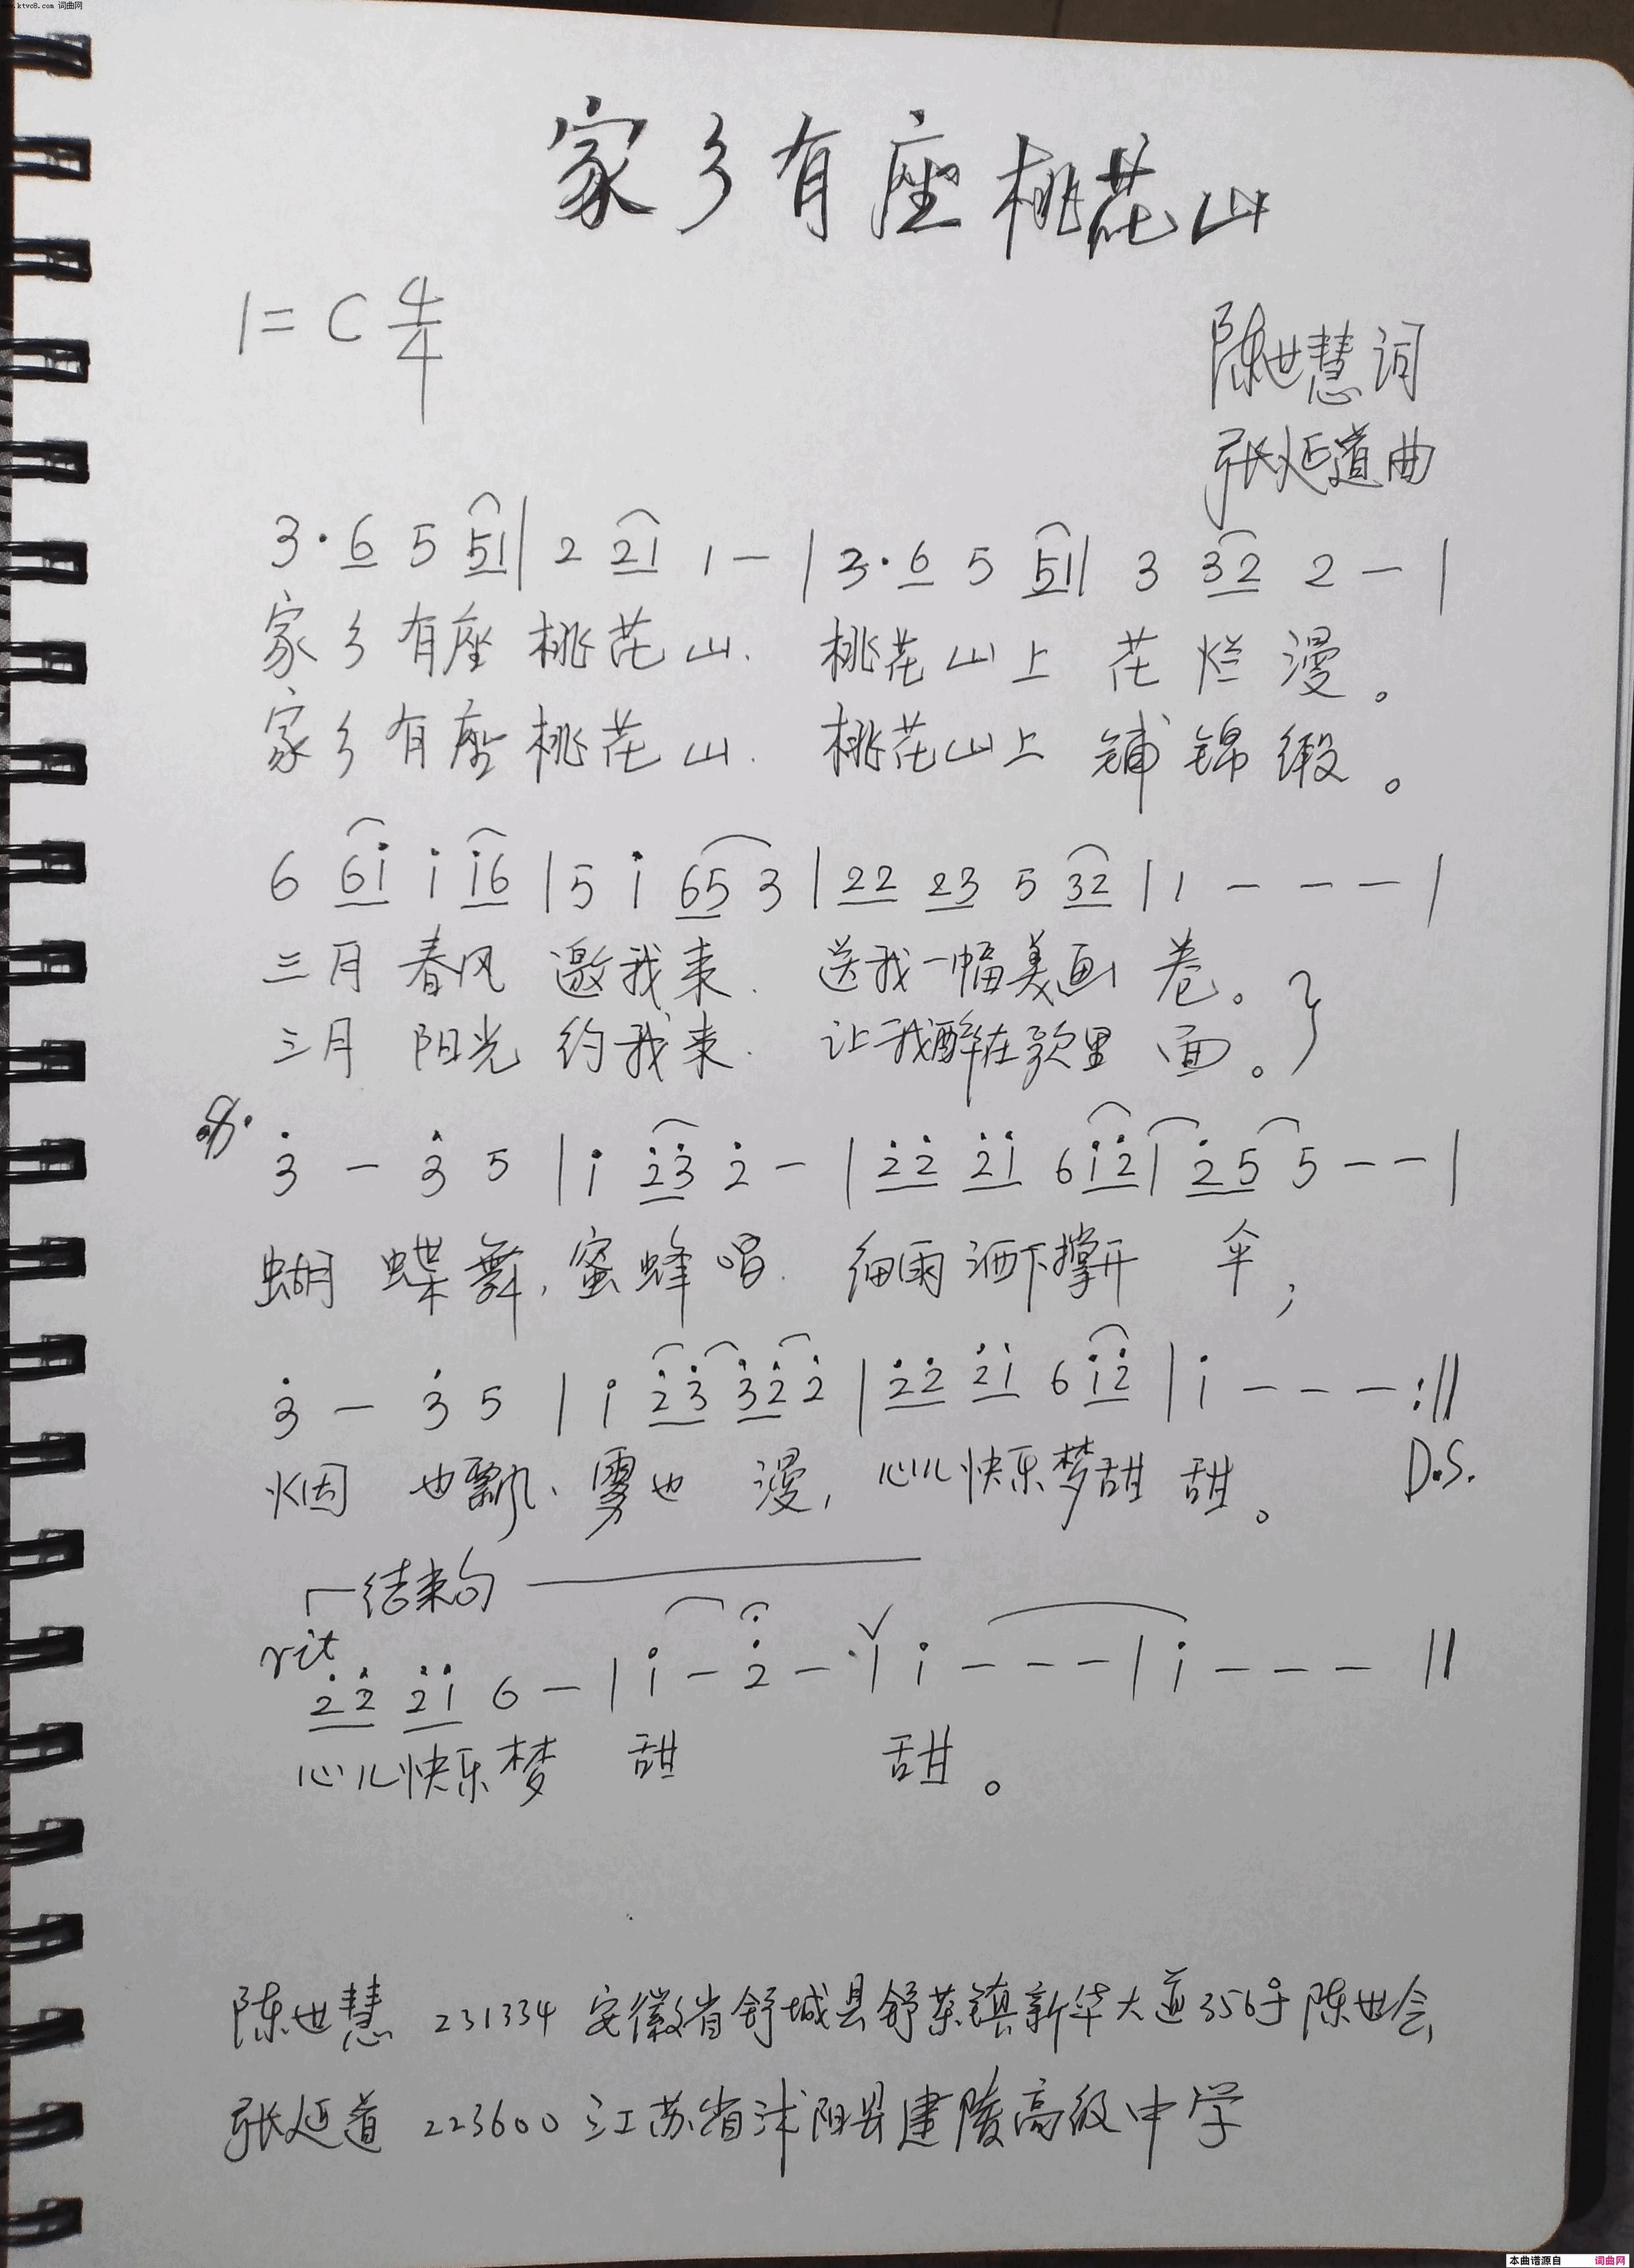 www.ktvc8.com 词曲网
家乡有座桃花山
1=C 4/4
陈世慧词
张延道曲
3·6 5 51|2 21 1-|3·6 5 51|3 32 2-|
家乡有座桃花山. 桃花山上花烂漫。
家乡有座桃花山. 桃花山上铺锦缎。
6 6i i i6|5 i 65 3|22 23 5 32|1---|
三月春风邀我来. 送我一幅美画卷。}
三月阳光约我来. 让我醉在歌里面。
3̇-3̇ 5|i 2̇3̇ 2̇-|2̇2̇ 2̇i 6 i2̇|2̇5 5--|
蝴蝶舞,蜜蜂唱. 细雨洒下撑开伞;
3̇-3̇ 5|i 2̇3̇ 3̇2̇ 2̇|2̇2̇ 2̇i 6 i2̇|i---:||
烟也飘、雾也漫,心儿快乐梦甜甜。 D.S.
结束句
rit
2̇2̇ 2̇i 6-|i-2̇-·|i---|i---||
心儿快乐梦甜甜。
陈世慧 231334 安徽省舒城县舒茶镇新华大道356号陈世会
张延道 223600 江苏省沭阳县建陵高级中学
本曲谱源自 词曲网